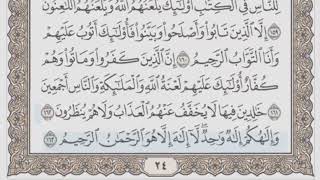 لِلنَّاسِ فِي ٱلْكِتَٰبِ أُو۟لَٰٓئِكَ يَلْعَنُهُمُ ٱللَّهُ وَيَلْعَنُهُمُ ٱللَّٰعِنُونَ
١٥٩ إِلَّا ٱلَّذِينَ تَابُوا۟ وَأَصْلَحُوا۟ وَبَيَّنُوا۟ فَأُو۟لَٰٓئِكَ أَتُوبُ عَلَيْهِمْ
وَأَنَا ٱلتَّوَّابُ ٱلرَّحِيمُ ١٦٠ إِنَّ ٱلَّذِينَ كَفَرُوا۟ وَمَاتُوا۟ وَهُمْ
كُفَّارٌ أُو۟لَٰٓئِكَ عَلَيْهِمْ لَعْنَةُ ٱللَّهِ وَٱلْمَلَٰٓئِكَةِ وَٱلنَّاسِ أَجْمَعِينَ
١٦١ خَٰلِدِينَ فِيهَا لَا يُخَفَّفُ عَنْهُمُ ٱلْعَذَابُ وَلَا هُمْ يُنظَرُونَ ١٦٢
وَإِلَٰهُكُمْ إِلَٰهٌ وَٰحِدٌ لَّآ إِلَٰهَ إِلَّا هُوَ ٱلرَّحْمَٰنُ ٱلرَّحِيمُ ١٦٣
٢٤